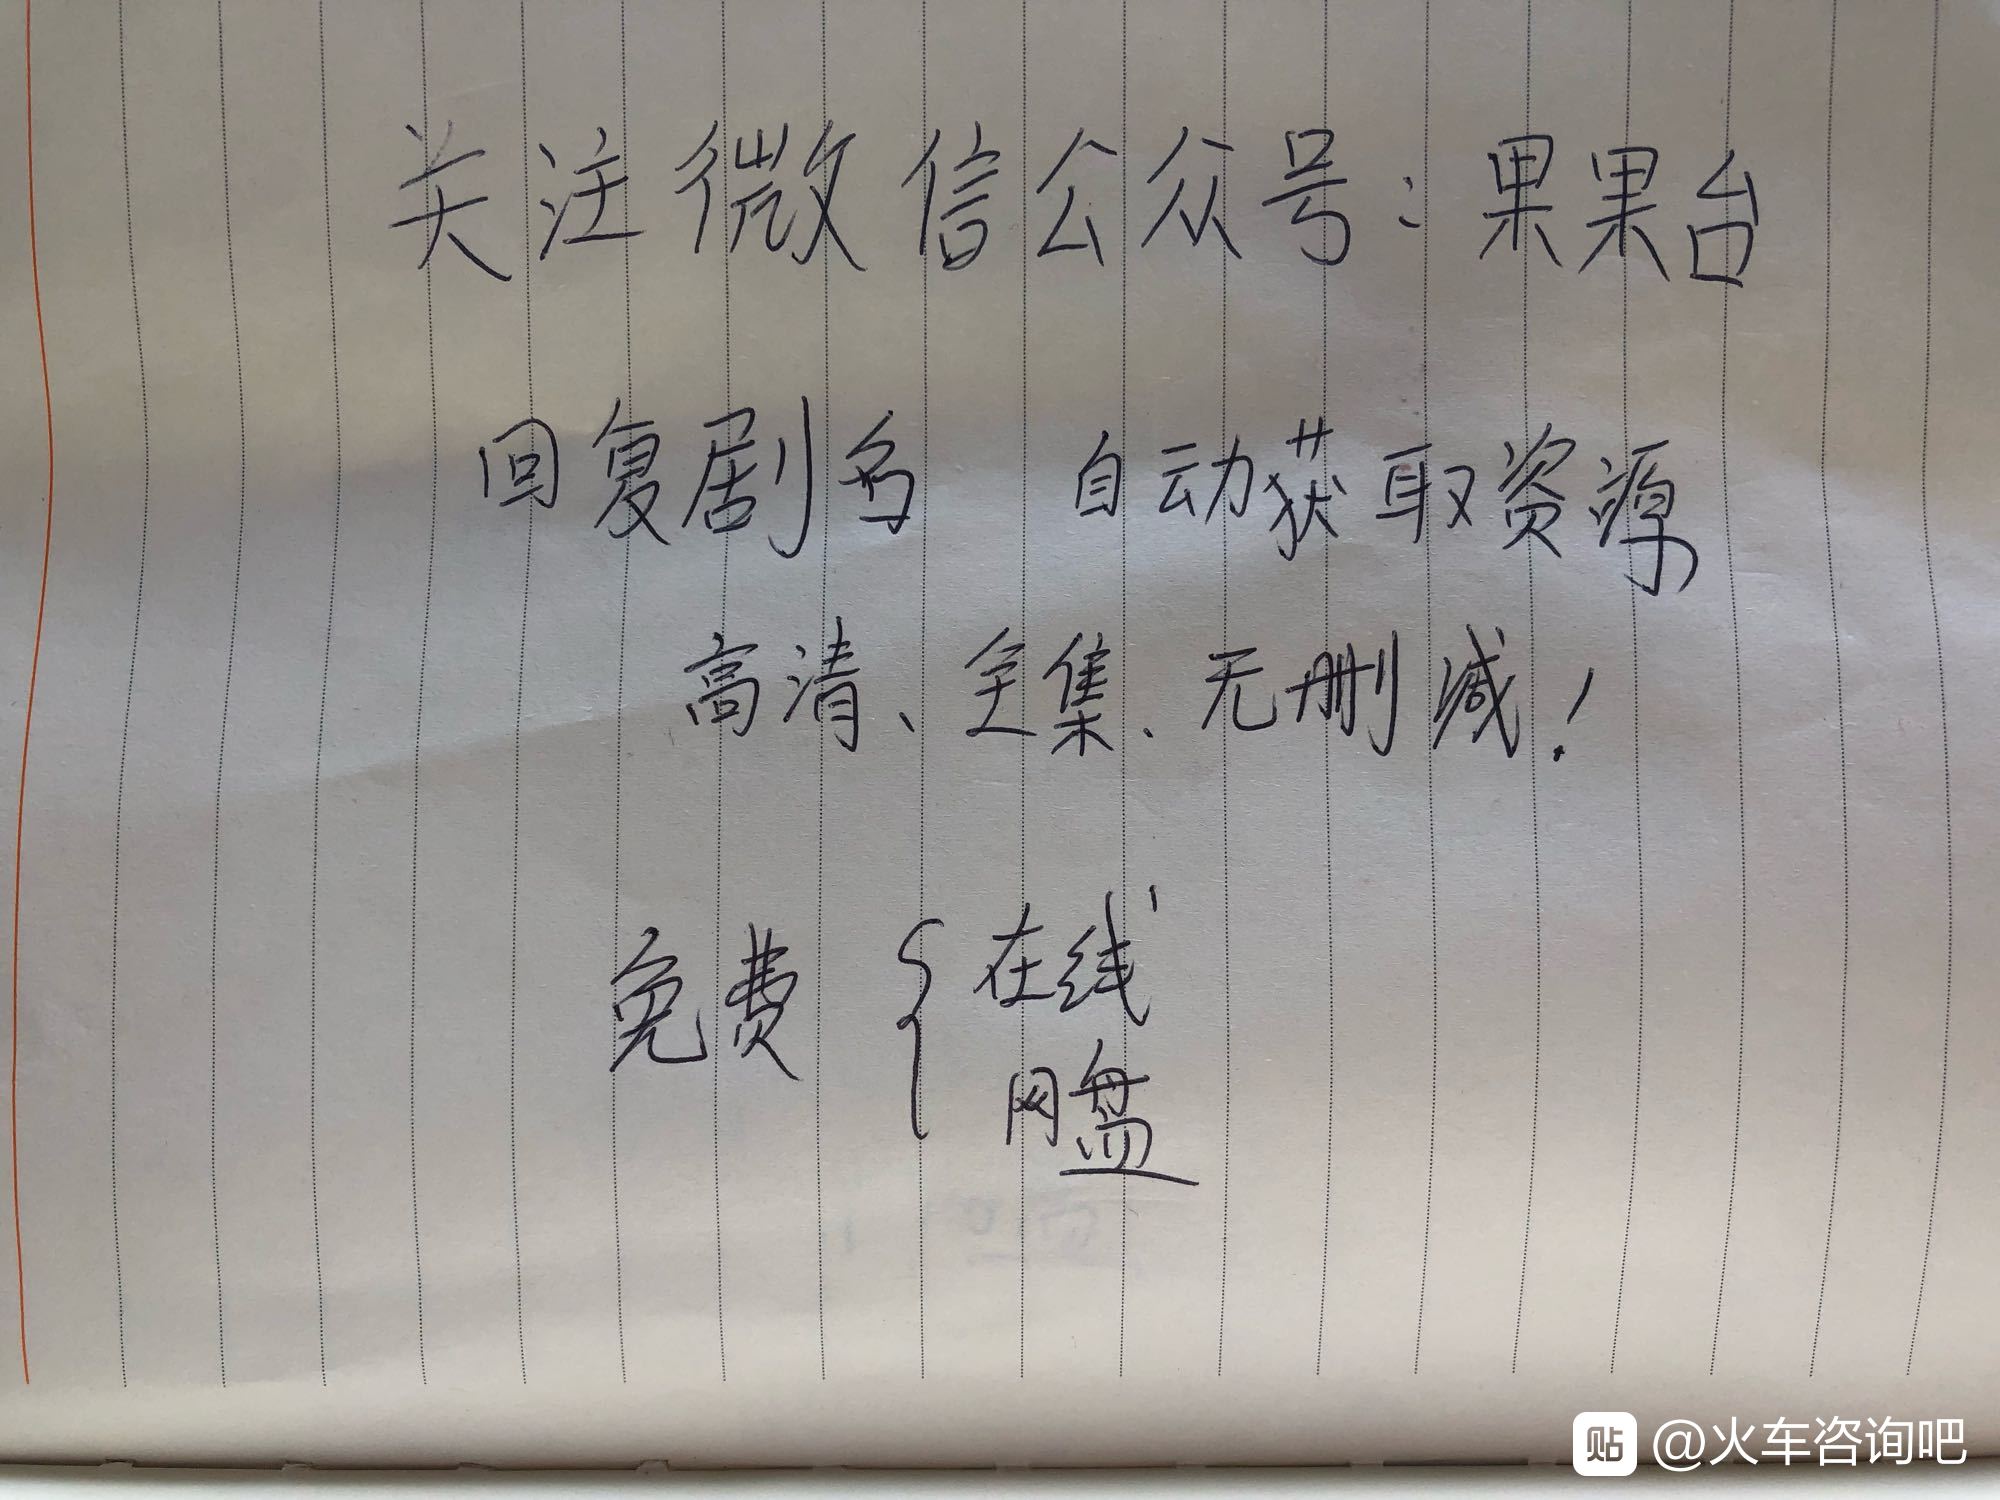 关注微信公众号：果果台
回复剧名 自动获取资源
高清、全集、无删减！
免费{在线
网盘
贴 @火车咨询吧